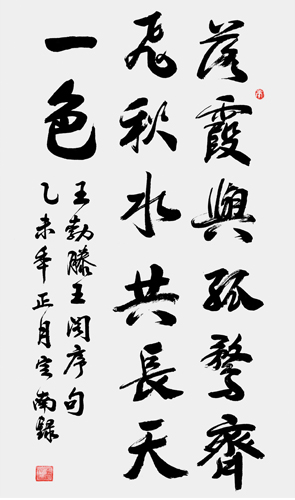 落霞與孤鶩齊
飛秋水共長天
一色
王勃滕王閣序句
乙未年正月南録